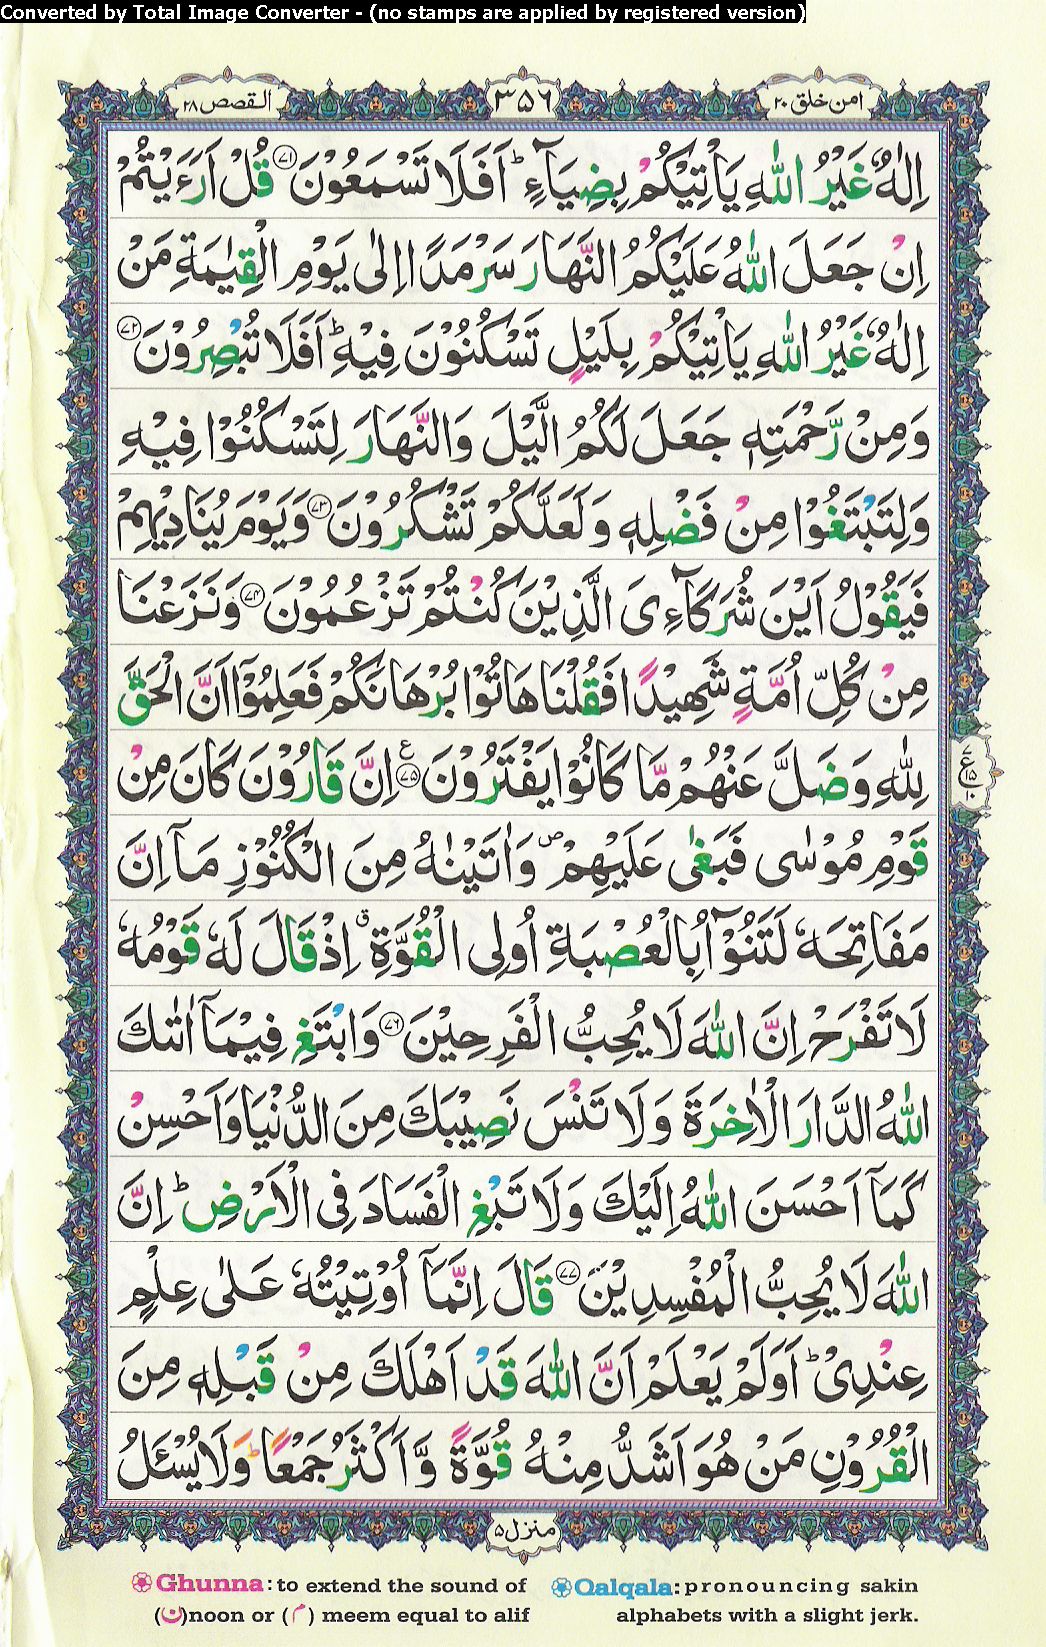 Converted by Total Image Converter - (no stamps are applied by registered version)
امن خلق ۲۰
۳۵۶
القصص ۲۸
اِلٰهٌ غَیْرُ اللّٰهِ یَاْتِیْكُمْ بِضِیَآءٍ ؕ اَفَلَا تَسْمَعُوْنَ ۷۱ قُلْ اَرَءَیْتُمْ
اِنْ جَعَلَ اللّٰهُ عَلَیْكُمُ النَّهَارَ سَرْمَدًا اِلٰی یَوْمِ الْقِیٰمَةِ مَنْ
اِلٰهٌ غَیْرُ اللّٰهِ یَاْتِیْكُمْ بِلَیْلٍ تَسْكُنُوْنَ فِیْهِ ؕ اَفَلَا تُبْصِرُوْنَ ۷۲
وَمِنْ رَّحْمَتِهٖ جَعَلَ لَكُمُ الَّیْلَ وَالنَّهَارَ لِتَسْكُنُوْا فِیْهِ
وَلِتَبْتَغُوْا مِنْ فَضْلِهٖ وَلَعَلَّكُمْ تَشْكُرُوْنَ ۷۳ وَیَوْمَ یُنَادِیْهِمْ
فَیَقُوْلُ اَیْنَ شُرَكَآءِیَ الَّذِیْنَ كُنْتُمْ تَزْعُمُوْنَ ۷۴ وَنَزَعْنَا
مِنْ كُلِّ اُمَّةٍ شَهِیْدًا فَقُلْنَا هَاتُوْا بُرْهَانَكُمْ فَعَلِمُوْۤا اَنَّ الْحَقَّ
لِلّٰهِ وَضَلَّ عَنْهُمْ مَّا كَانُوْا یَفْتَرُوْنَ ۷۵ ع اِنَّ قَارُوْنَ كَانَ مِنْ
۷
ع ۱۵
۱۰
قَوْمِ مُوْسٰی فَبَغٰی عَلَیْهِمْ ۪ وَاٰتَیْنٰهُ مِنَ الْكُنُوْزِ مَاۤ اِنَّ
مَفَاتِحَهٗ لَتَنُوْٓاُ بِالْعُصْبَةِ اُولِی الْقُوَّةِ ۗ اِذْ قَالَ لَهٗ قَوْمُهٗ
لَا تَفْرَحْ اِنَّ اللّٰهَ لَا یُحِبُّ الْفَرِحِیْنَ ۷۶ وَابْتَغِ فِیْمَاۤ اٰتٰىكَ
اللّٰهُ الدَّارَ الْاٰخِرَةَ وَلَا تَنْسَ نَصِیْبَكَ مِنَ الدُّنْیَا وَاَحْسِنْ
كَمَاۤ اَحْسَنَ اللّٰهُ اِلَیْكَ وَلَا تَبْغِ الْفَسَادَ فِی الْاَرْضِ ؕ اِنَّ
اللّٰهَ لَا یُحِبُّ الْمُفْسِدِیْنَ ۷۷ قَالَ اِنَّمَاۤ اُوْتِیْتُهٗ عَلٰی عِلْمٍ
عِنْدِیْ ؕ اَوَلَمْ یَعْلَمْ اَنَّ اللّٰهَ قَدْ اَهْلَكَ مِنْ قَبْلِهٖ مِنَ
الْقُرُوْنِ مَنْ هُوَ اَشَدُّ مِنْهُ قُوَّةً وَّاَكْثَرُ جَمْعًا ؕ وَلَا یُسْـَٔلُ
منزل ۵
Ghunna: to extend the sound of
(ن)noon or (م) meem equal to alif
Qalqala: pronouncing sakin
alphabets with a slight jerk.